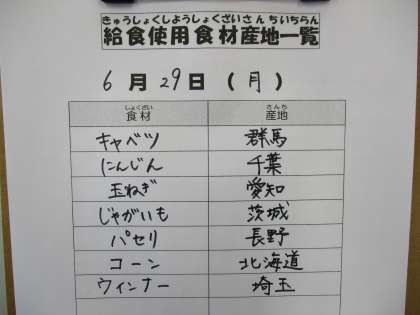 きゅうしょくしようしょくざいさんちいちらん
給食使用食材産地一覧
6月29日(月)
しょくざい さんち
食材 産地
キャベツ 群馬
にんじん 千葉
玉ねぎ 愛知
じゃがいも 茨城
パセリ 長野
コーン 北海道
ウィンナー 埼玉